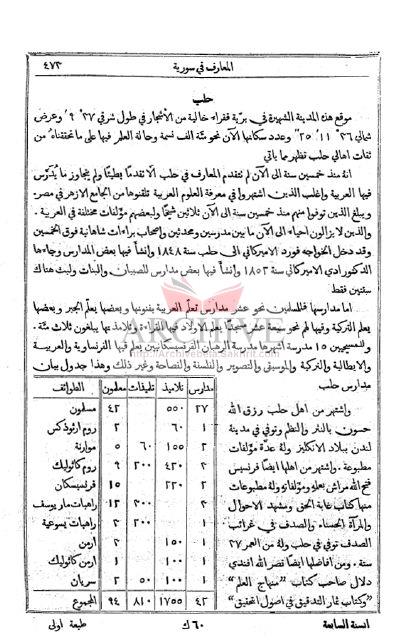 ٤٧٣ المعارف في سورية
حلب
موقع هذه المدينة الشهيرة في برّية قفراء خالية من الأشجار في طول شرقي ٣٧ ٩َ وعرض
شمالي ٣٦ ١١َ ٢٥ً وعدد سكانها الآن نحو مئة الف نسمة وحالة العلم فيها على ما تحققناه من
ثقات اهالي حلب تظهر مما ياتي
انهُ منذ خمسين سنة الى الآن لم تتقدم المعارف في حلب الَّا تقدمًا بطيئًا ولم يتجاوز ما يُدَرَّس
فيها العربية واغلب الذين اشتهروا في معرفة العلوم العربية تلقنوها من الجامع الازهر في مصر.
ويبلغ الذين توفوا منهم منذ خمسين سنة الى الآن ثلاثين شيخًا ولبعضهم مؤلفات مختلفة في العربية.
والذين لا يزالون احياء الى الآن ما بين مدرسين ومحدثين واصحاب براءات شاهانية فوق الخمسين
وقد دخل الخواجه فورد الاميركاني الى حلب سنة ١٨٤٨ وانشأ فيها بعض المدارس وجاءها
الدكتور ادي الاميركاني سنة ١٨٥٢ وانشأ فيها بعض مدارس للصبيان والبنات ولبث هناك
سنتين فقط
اما مدارسها فللمسلمين نحو عشر مدارس تعلّم العربية بفنونها وبعضها يعلّم الجبر وبعضها
يعلّم التركية وفيها لهم نحو سبعة عشر لتعليم الاولاد فيها القرا تلامذتها يبلغون ثلاث مئة.
وللمسيحيين ١٥ مدرسة اشهرها مدرسة الرهبان الفرنسيسكانيين يعلّم فيها الفرنساوية والعربية
والايطالية والتركية والموسيقى والتصوير والفلسفة والفصاحة وغير ذلك وهذا جدول بيان
مدارس حلب
واشتهر من اهل حلب رزق الله
حسون بالنثر والنظم وتوفي في مدينة
لندن ببلاد الانكليز ولهُ عدّة مؤلفات
مطبوعة. واشتهر من اهلها ايضًا فرنسيس
فتح الله مراش بعلمهِ ومؤلفاتهِ ولهُ مطبوعات
منها كتاب غابة الحق ومشهد الاحوال
والمرآة الحسناء والصدف في غرائب
الصدف توفي في حلب ولهُ من العمر ٣٧
سنة. ومن افاضلها ايضًا نصر الله افندي
دلال صاحب كتاب "منهاج العلم"
"وكتاب ثمار التدقيق في اصول التحقيق"
مدارس تلاميذ تلميذات معلمون الطوائف
٢٧ ٥٥٠ ٤٢ مسلمون
١ ٦٠ ٢ روم ارثوذكس
٢ ١٥٥ ٦٠ ٥ موارنة
٢ ٤٢٠ ٢٠٠ ٩ روم كاثوليك
٢ ٢٢٠ ١٥ فرنسيسكان
٢ ٣٠٠ ١٢ راهبات مار يوسف
١ ٢٠٠ ٢ راهبات يسوعية
١ ١٥٠ ٢ أرمن
١ ١٠٠ ١ أرمن كاثوليك
٢ ١٠٠ ٥٠ ٢ سريان
٤٢ ١٧٥٥ ٨١٠ ٩٤ المجموع
السنة السابعة ٦٠ ك طبعة اولى
ARCHIVE
http://Archivebeta.Sakhrit.com